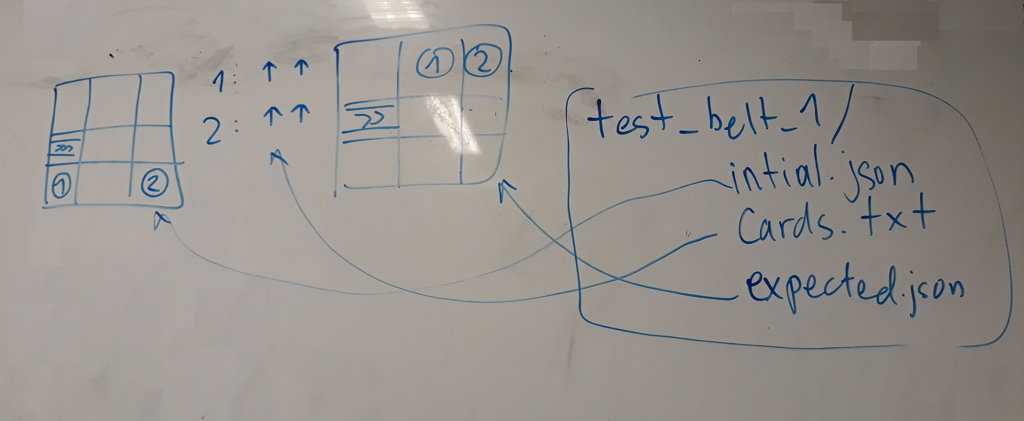 >>>
① ②
1: ↑ ↑
2: ↑ ↑
① ②
>>
test_belt_1/
intial.json
Cards.txt
expected.json